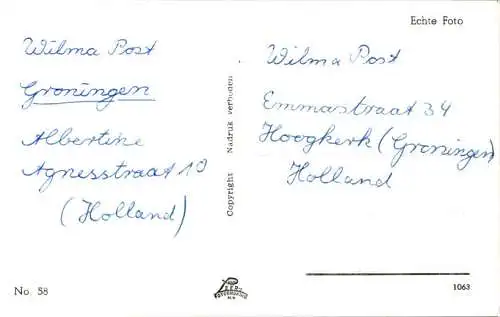 Echte Foto
Wilma Post
Groningen
Albertine
Agnesstraat 10
(Holland)
Copyright Nadruk verboden
Wilma Post
Emmastraat 34
Hoogkerk (Groningen)
Holland
No. 58
1063